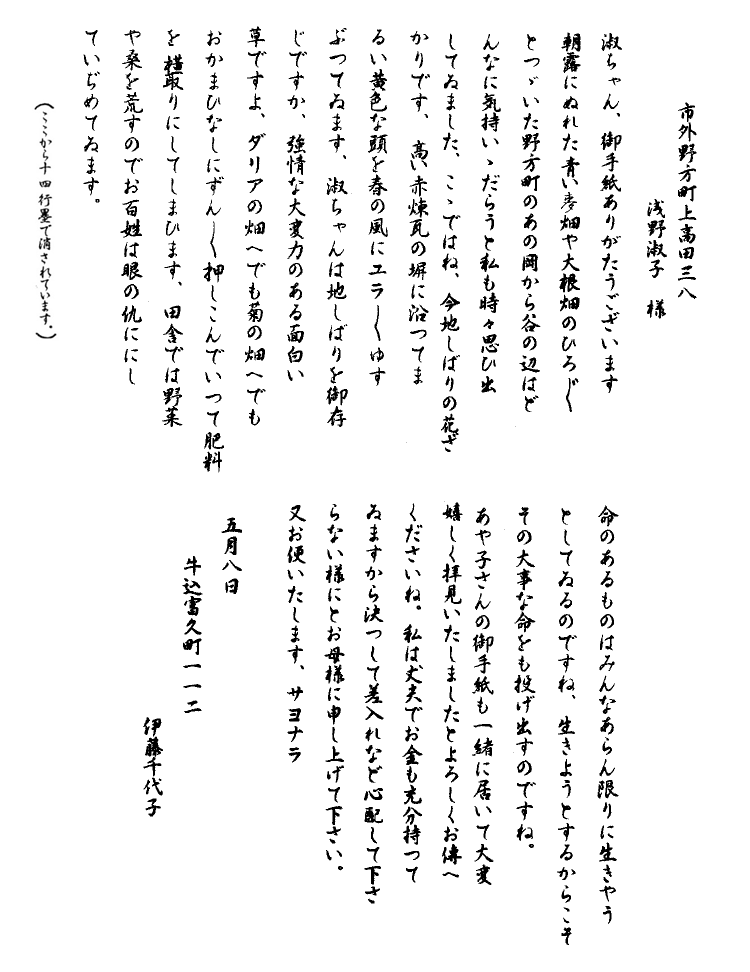 市外野方町上高田三八
浅野淑子 様
淑ちゃん、御手紙ありがたうございます
朝露にぬれた青い麦畑や大根畑のひろ〲
とつゞいた野方町のあの岡から谷の辺はど
んなに気持いゝだらうと私も時々思ひ出
してゐました、こゝではね、今地しばりの花ざ
かりです、高い赤煉瓦の塀に沿つてま
るい黄色な頭を春の風にユラ〳〵ゆす
ぶつてゐます、淑ちゃんは地しばりを御存
じですか、強情な大変力のある面白い
草ですよ、ダリアの畑へでも菊の畑へでも
おかまひなしにずん〳〵押しこんでいつて肥料
を横取りにしてしまひます、田舎では野菜
や桑を荒すのでお百姓は眼の仇ににし
ていぢめてゐます。
（ここから十四行墨で消されています。）
命のあるものはみんなあらん限りに生きやう
としてゐるのですね、生きようとするからこそ
その大事な命をも投げ出すのですね。
あや子さんの御手紙も一緒に居いて大変
嬉しく拝見いたしましたとよろしくお傳へ
くださいね。私は丈夫でお金も充分持つて
ゐますから決つして差入れなど心配して下さ
らない様にとお母様に申し上げて下さい。
又お便いたします、サヨナラ
五月八日
牛込富久町一一二
伊藤千代子